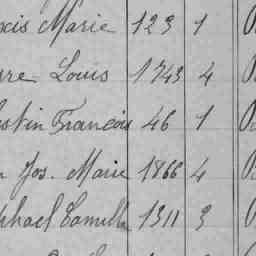 xis Marie 123 1
rre Louis 1743 4
estin Francois 46 1
Jos. Marie 1866 4
phael Camille 1311 3